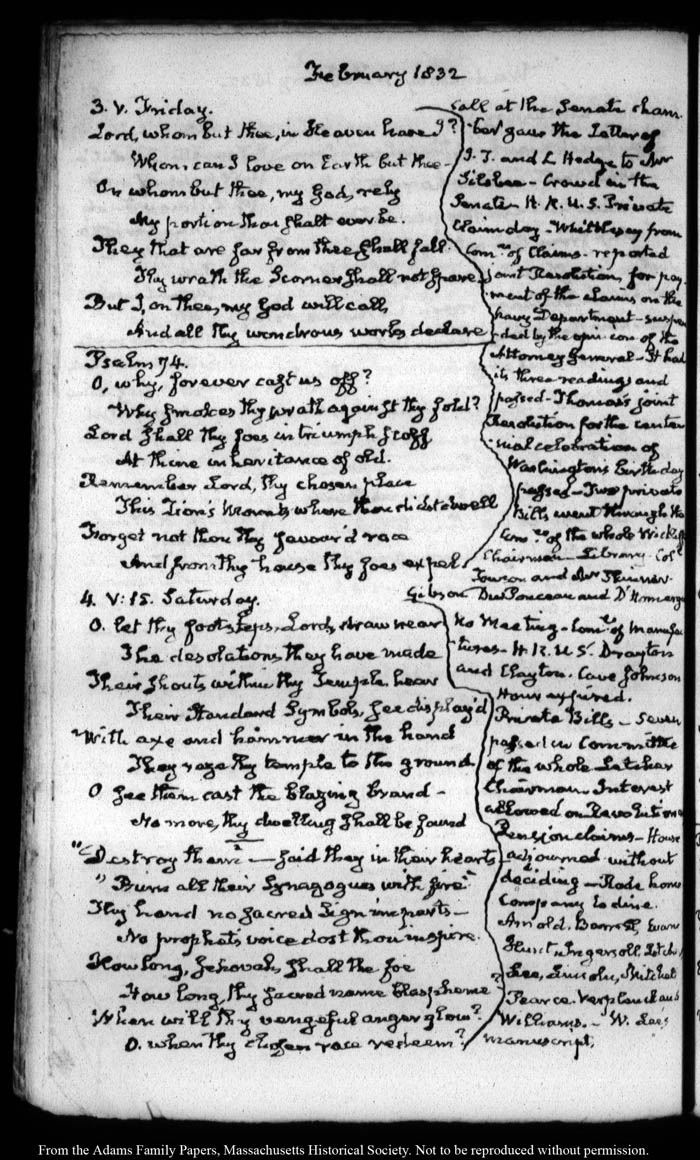 February 1832
3. V. Friday.
Lord, whom but thee, in Heaven have I?
Whom can I love on Earth but thee—
On whom but thee, my God, rely
My portion thou shalt ever be.
They that are far from thee shall fall.
Thy wrath the Scorner shall not spare
But I, on thee, my God will call,
And all thy wondrous works declare
Psalm 74.
O, why, forever cast us off?
Why smokes thy wrath against thy fold?
Lord shall thy foes in triumph scoff
At thine inheritance of old.
Remember Lord, thy chosen place
This Zion's Mount, where thou didst dwell
Forget not thou thy favour'd race
And from thy house thy foes expel.
call at the Senate cham
ber gave the Letter of
I. T. and L Hedge to Mr
Silsbee— Crowd in the
Senate— H. R. U. S. Private
Claim day— Whittlesey from
Com.ee of Claims— reported
joint Resolution, for pay
ment of the claims on the
Navy Department— suspen
ded by the opinion of the
Attorney General— It had
its three readings and
passed— Thomas's joint
Resolution for the centen
nial celebration of
Washington's birthday
passed— Two private
Bills went through the
Com.ee of the whole Wickliffe
Chairman— Library. Col.
Towson and Mr Skinner
4. V: 15. Saturday.
O. let thy footsteps, Lord, draw near
The desolations they have made
Their shouts within thy Temple hear
Their Standard Symbols, see display'd
With axe and hammer in the hand
They raze thy temple to the ground
O see them cast the blazing brand—
No more, thy dwelling shall be found
"Destroy them"— said they in their hearts
"Burn all their Synagogues with fire"
Thy hand no sacred sign imparts—
No prophet's voice dost thou inspire.
How long, Jehovah, shall the foe
How long, thy sacred name blaspheme?
When will thy vengeful anger glow?
O. when thy chosen race redeem?
Gibson Du Ponceau and
No Meeting— Com.ee of Manufac
tures— H. R. U. S. Drayton
and Clayton. Cave Johnson
Hour expired.
Private Bills— Seven
passed in Committee
of the whole
Chairman. Interest
allowed on Revolution
Pension claims— House
adjourned without
deciding— Rode home
Company to dine.
Arnold. Evans
Hunt. Ingersoll.
Lee, Lincoln, Mitchel
Pearce. Verplanck and
Williams.— W. Lee's
manuscript.
From the Adams Family Papers, Massachusetts Historical Society. Not to be reproduced without permission.